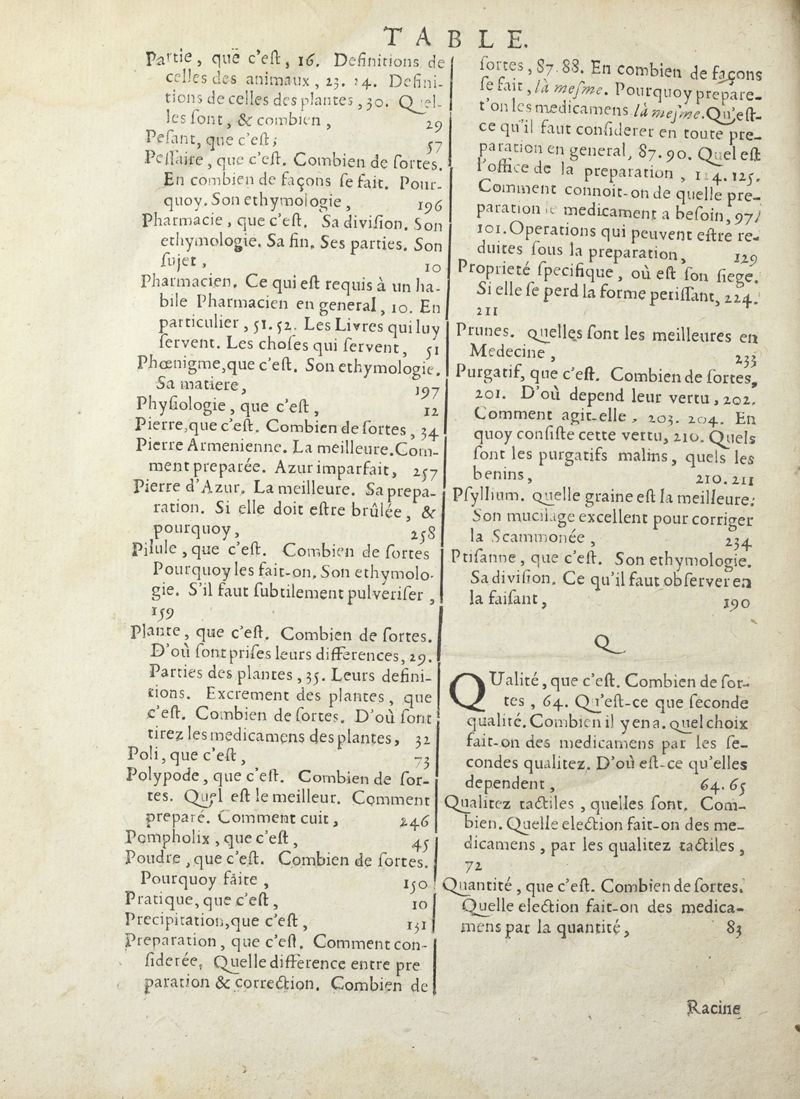 TABLE.
Partie, que c'eſt, 16. Definitions de
celles des animaux, 23. 24. Defini-
tions de celles des plantes, 30. Quel-
les ſont, & combien, 29
Peſant, que c'eſt; 57
Peſſaire, que c'eſt. Combien de ſortes.
En combien de façons ſe fait. Pour-
quoy. Son ethymologie, 196
Pharmacie, que c'eſt. Sa diviſion. Son
ethymologie. Sa fin. Ses parties. Son
ſujet, 10
Pharmacien. Ce qui eſt requis à un ha-
bile Pharmacien en general, 10. En
particulier, 51. 52. Les Livres qui luy
ſervent. Les choſes qui ſervent, 51
Phœnigme, que c'eſt. Son ethymologie.
Sa matiere, 197
Phyſiologie, que c'eſt, 12
Pierre, que c'eſt. Combien de ſortes, 34
Pierre Armenienne. La meilleure. Com-
ment preparée. Azur imparfait, 257
Pierre d'Azur. La meilleure. Sa prepa-
ration. Si elle doit eſtre brûlée, &
pourquoy, 258
Pilule, que c'eſt. Combien de ſortes
Pourquoy les fait-on. Son ethymolo-
gie. S'il faut ſubtilement pulveriſer,
159
Plante, que c'eſt. Combien de ſortes.
D'où ſont priſes leurs differences, 29.
Parties des plantes, 35. Leurs defini-
tions. Excrement des plantes, que
c'eſt. Combien de ſortes. D'où ſont
tirez les medicamens des plantes, 32
Poli, que c'eſt, 73
Polypode, que c'eſt. Combien de ſor-
tes. Quel eſt le meilleur. Comment
preparé. Comment cuit, 246
Pompholix, que c'eſt, 45
Poudre, que c'eſt. Combien de ſortes.
Pourquoy faite, 150
Pratique, que c'eſt, 10
Precipitation, que c'eſt, 131
Preparation, que c'eſt. Comment con-
ſiderée, Quelle difference entre pre
paration & correction. Combien de
ſortes, 87. 88. En combien de façons
ſe fait, là meſme. Pourquoy prepare-
t'on les medicamens là meſme. Qu'eſt-
ce qu'il faut conſiderer en toute pre-
paration en general, 87. 90. Quel eſt
l'office de la preparation, 124. 125.
Comment connoit-on de quelle pre-
paration le medicament a beſoin, 97
101. Operations qui peuvent eſtre re-
duites ſous la preparation, 129
Proprieté ſpecifique, où eſt ſon ſiege.
Si elle ſe perd la forme periſſant, 224.
211
Prunes. quelles ſont les meilleures en
Medecine, 233
Purgatif, que c'eſt. Combien de ſortes,
201. D'où depend leur vertu, 202.
Comment agit-elle, 203. 204. En
quoy conſiſte cette vertu, 210. Quels
ſont les purgatifs malins, quels les
benins, 210. 211
Pſyllium. quelle graine eſt la meilleure.
Son mucilage excellent pour corriger
la Scammonée, 234
Ptiſanne, que c'eſt. Son ethymologie.
Sa diviſion. Ce qu'il faut obſerver en
la faiſant, 190
Q
QUalité, que c'eſt. Combien de ſor-
tes, 64. Qu'eſt-ce que ſeconde
qualité. Combien il y en a. quel choix
fait-on des medicamens par les ſe-
condes qualitez. D'où eſt-ce qu'elles
dependent, 64. 65
Qualitez tactiles, quelles ſont. Com-
bien. Quelle election fait-on des me-
dicamens, par les qualitez tactiles,
72
Quantité, que c'eſt. Combien de ſortes.
Quelle election fait-on des medica-
mens par la quantité, 83
Racine